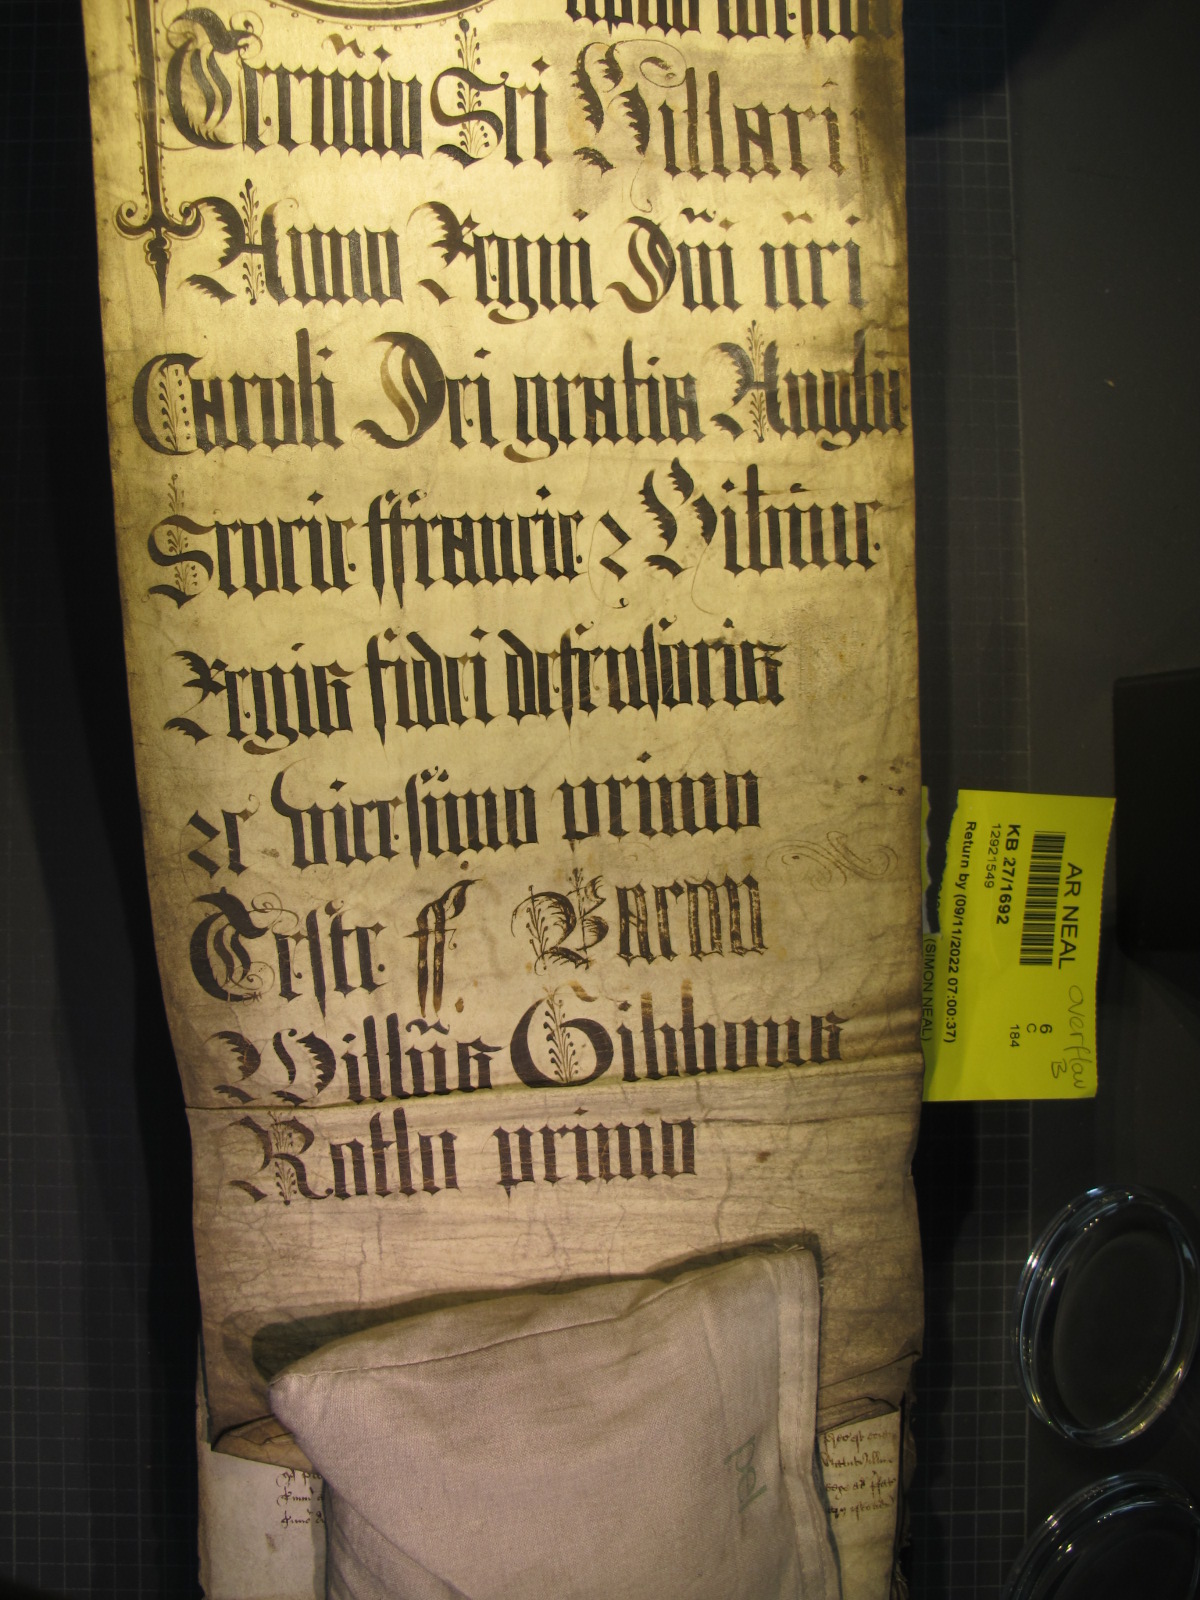 Termio Sci Hillarii
Anno Regni Dni nri
Caroli Dei gratia Anglie
Scocie ffrancie & Hibnie
Regis fidei defensoris
&c vicesimo primo
Teste ff Barou
Willms Gibbons
Rotlo primo
AR NEAL
KB 27/1692
12921549
Return by (09/11/2022 07:00:37)
(SIMON NEAL)
6
C
184
overflow
B